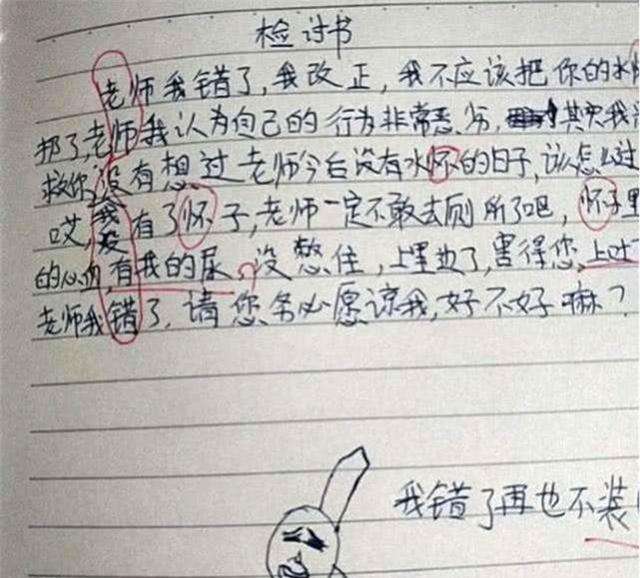 检讨书
老师我错了,我改正,我不应该把你的水
邦了,老师我认为自己的行为非常恶劣,其实我
救你,没有想过老师今后没有水怀的日子,该怎么过
哎,我没有了怀子,老师一定不敢去厕所了吧,怀子里
的心血,有我的尿,没憋住,上里边了,害得您,上吐
老师我错了,请您务必愿谅我,好不好嘛?
我错了再也不装